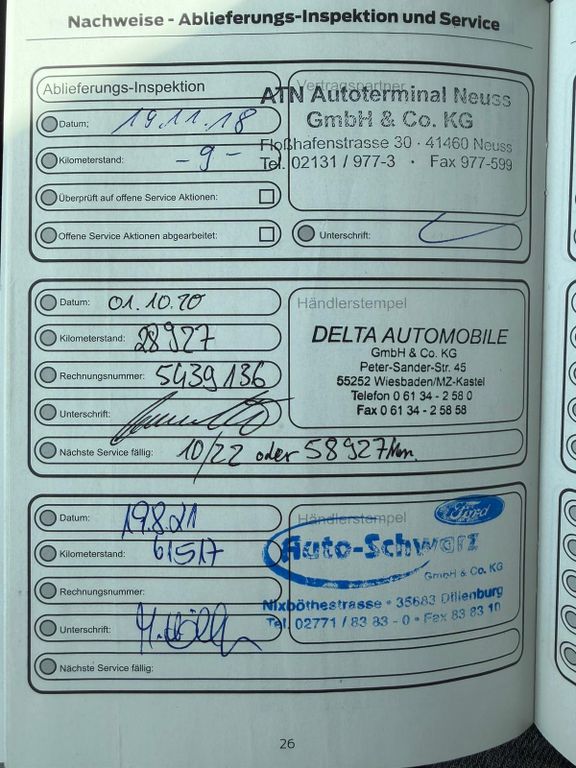 Nachweise - Ablieferungs-Inspektion und Service
Ablieferungs-Inspektion
Vertragspartner
ATN Autoterminal Neuss
GmbH & Co. KG
Floßhafenstrasse 30 · 41460 Neuss
Tel. 02131 / 977-3 · Fax 977-599
Datum: 19.11.18
Kilometerstand: - 9 -
Überprüft auf offene Service Aktionen:
Offene Service Aktionen abgearbeitet:
Unterschrift:
Datum: 01.10.20
Kilometerstand: 28927
Rechnungsnummer: 5439136
Unterschrift:
Nächste Service fällig: 10/22 oder 58927 km.
Händlerstempel
DELTA AUTOMOBILE
GmbH & Co. KG
Peter-Sander-Str. 45
55252 Wiesbaden/MZ-Kastel
Telefon 0 61 34 - 2 58 0
Fax 0 61 34 - 2 58 58
Datum: 19.8.21
Kilometerstand: 61517
Rechnungsnummer:
Unterschrift:
Nächste Service fällig:
Händlerstempel
Ford
Auto-Schwarz
GmbH & Co. KG
Nixböthestrasse • 35683 Dillenburg
Tel. 02771 / 83 83 - 0 • Fax 83 83 10
26